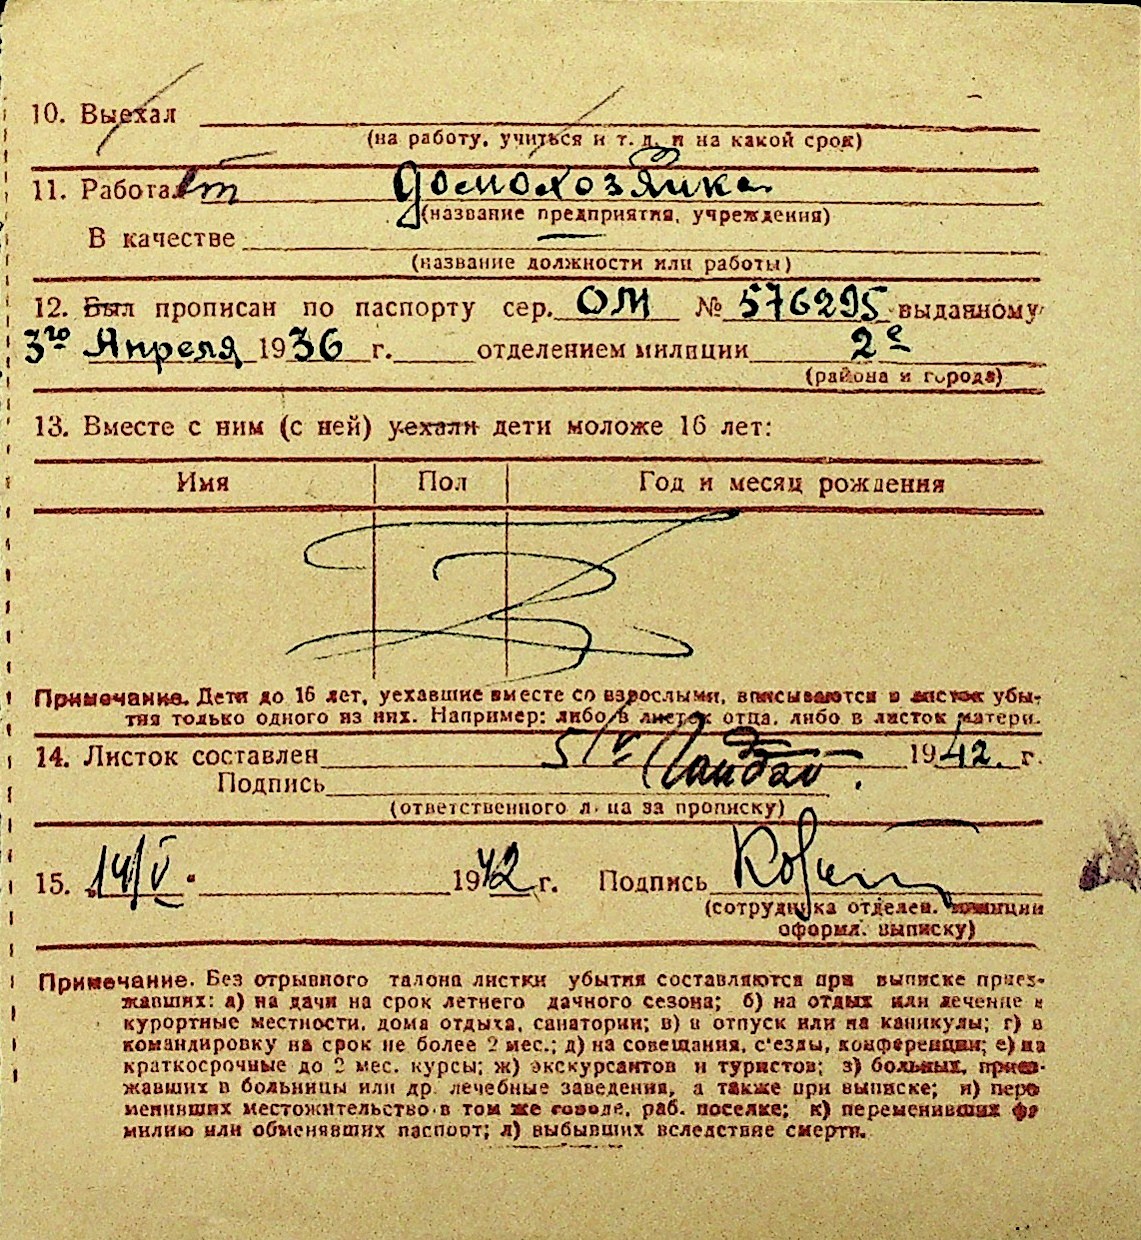 10. Выехал
(на работу, учиться и т. д. и на какой срок)
11. Работает домохозяйка
(название предприятия, учреждения)
В качестве —
(название должности или работы)
12. Был прописан по паспорту сер. ОМ № 576295 выданному
3го Апреля 1936 г. отделением милиции 2е
(района и города)
13. Вместе с ним (с ней) уехали дети моложе 16 лет:
Имя Пол Год и месяц рождения
Примечание. Дети до 16 лет, уехавшие вместе со взрослыми, вписываются в листок убы-
тия только одного из них. Например: либо в листок отца, либо в листок матери.
14. Листок составлен 5/V 1942 г.
Подпись
(ответственного лица за прописку)
15. „14/V" 1942 г. Подпись
(сотрудника отделен. милиции
оформл. выписку)
Примечание. Без отрывного талона листки убытия составляются при выписке приез-
жавших: а) на дачи на срок летнего дачного сезона; б) на отдых или лечение в
курортные местности, дома отдыха, санатории; в) в отпуск или на каникулы; г) в
командировку на срок не более 2 мес.; д) на совещания, с'езды, конференции; е) на
краткосрочные до 2 мес. курсы; ж) экскурсантов и туристов; з) больных, приез-
жавших в больницы или др. лечебные заведения, а также при выписке; и) пере
менивших местожительство в том же городе, раб. поселке; к) переменивших фа
милию или обменявших паспорт; л) выбывших вследствие смерти.